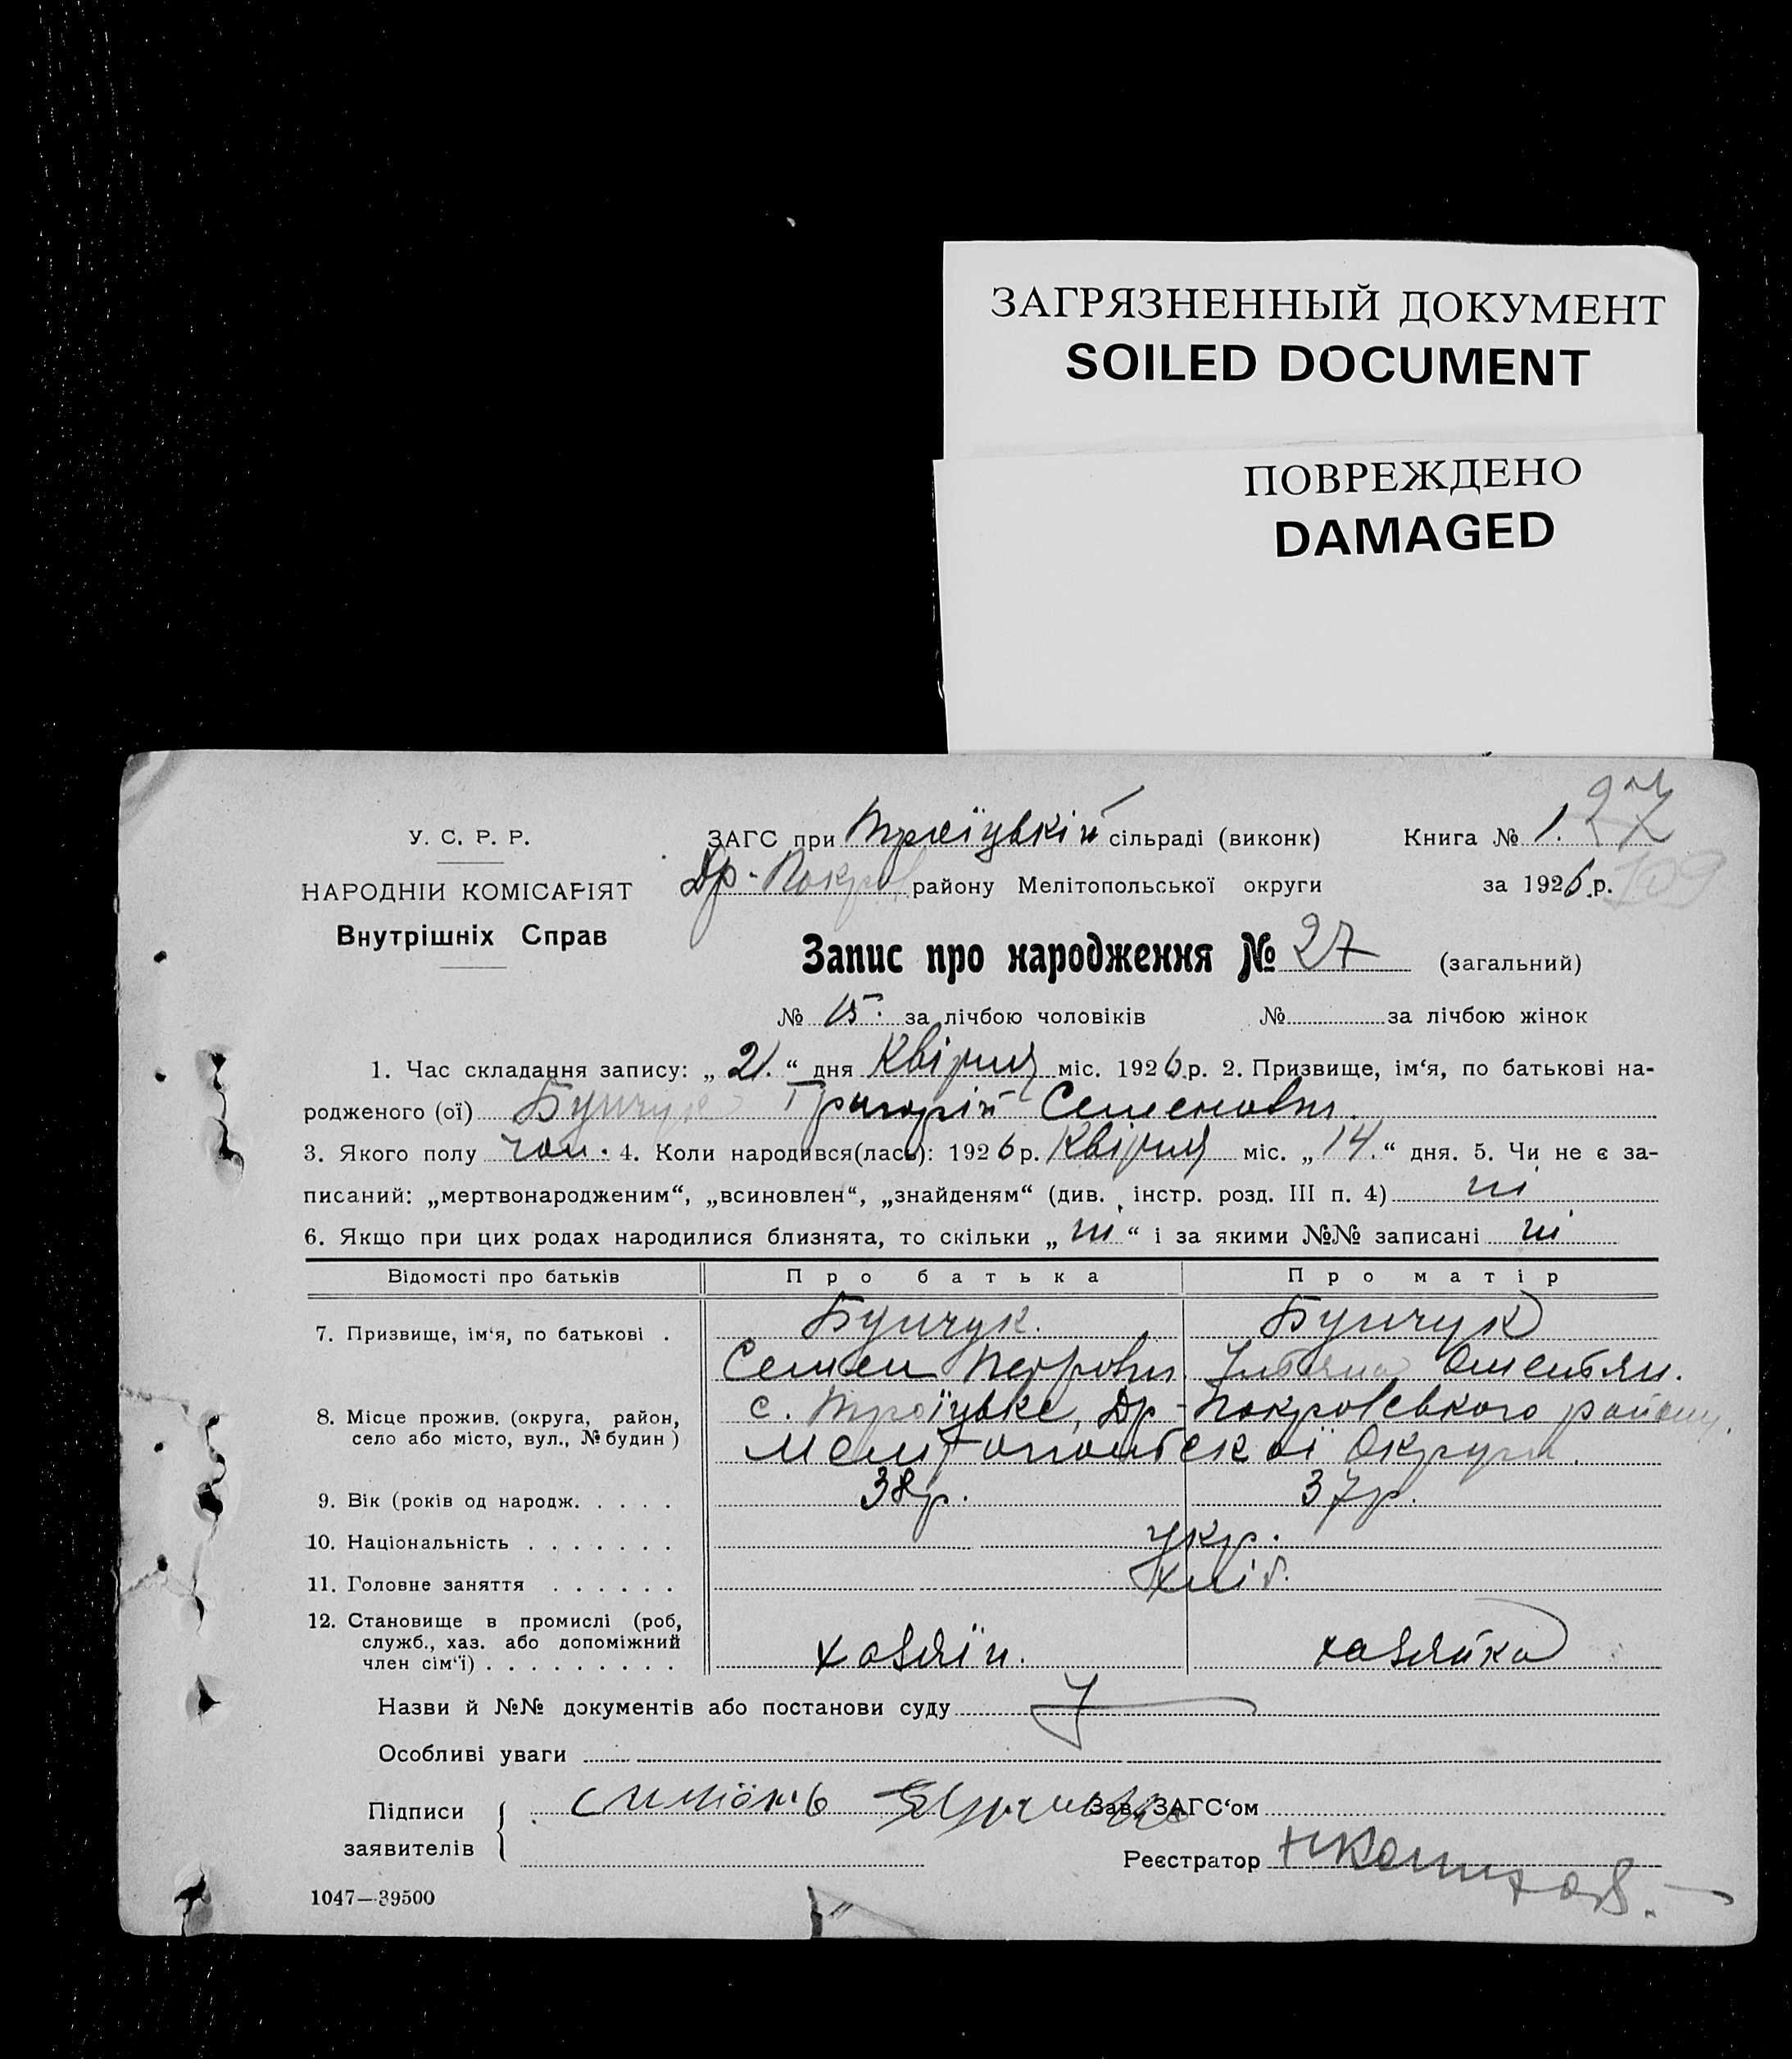 ЗАГРЯЗНЕННЫЙ ДОКУМЕНТ
SOILED DOCUMENT
ПОВРЕЖДЕНО
DAMAGED
27
У. С. Р. Р.
ЗАГС при Троїцькій сільраді (виконк) Книга № 1.
109
НАРОДНІЙ КОМІСАРІЯТ
Др-Покров району Мелітопольської округи за 1926 р.
Внутрішніх Справ
Запис про народження № 27 (загальний)
№ 15. за лічбою чоловіків № за лічбою жінок
1. Час складання запису: „21.“ дня Квітня міс. 1926 р. 2. Призвище, ім‘я, по батькові на-
родженого (ої) Бунчук Григорій Семенович.
3. Якого полу чол. 4. Коли народився(лась): 1926 р. Квітня міс. „14.“ дня. 5. Чи не є за-
писаний: „мертвонародженим“, „всиновлен“, „знайденям“ (див. інстр. розд. III п. 4) ні
6. Якщо при цих родах народилися близнята, то скільки „ні“ і за якими №№ записані ні
Відомості про батьків Про батька Про матір
7. Призвище, ім‘я, по батькові . Бунчук. Бунчук
Семен Петрович. Омелян.
8. Місце прожив. (округа, район, с. Троїцьке, Др-Покровського району,
село або місто, вул., № будин) Мелітопольської Округи.
9. Вік (років од народж. . . . . 38р. 37р.
10. Національність . . . . . . . укр.
11. Головне заняття . . . . . . хліб.
12. Становище в промислі (роб,
служб., хаз. або допоміжний
член сім‘ї) . . . . . . . . . хазяїн. хазяйка
Назви й №№ документів або постанови суду
Особливі уваги
Підписи Зав. ЗАГС‘ом
заявителів
Реєстратор
1047—39500